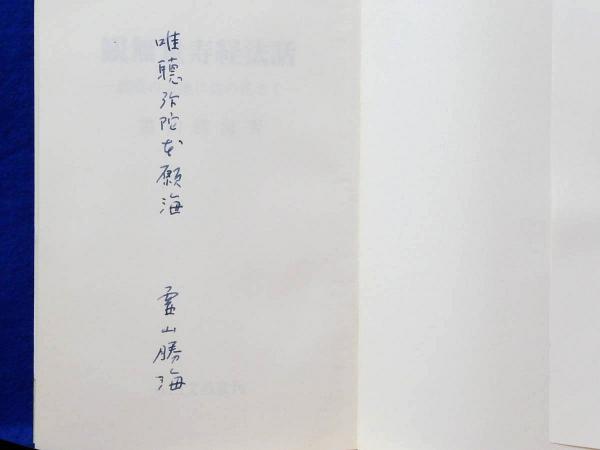 唯聴弥陀本願海
霊山勝海